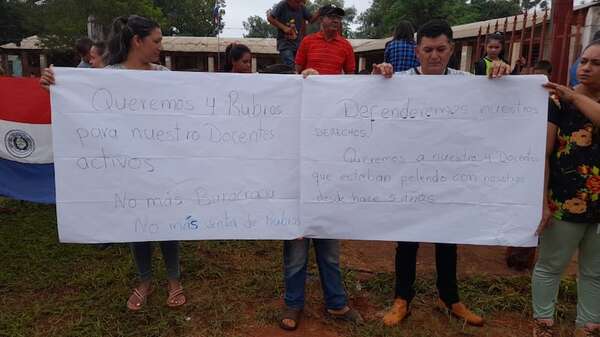 Queremos 4 Rubros
para nuestro Docentes
activos
No más Burocracia
No más venta de Rubros
Defenderemos nuestros
DERECHOS.
Queremos a nuestro 4 Docentes
que estaban peleando con nosotros
desde hace 5 años